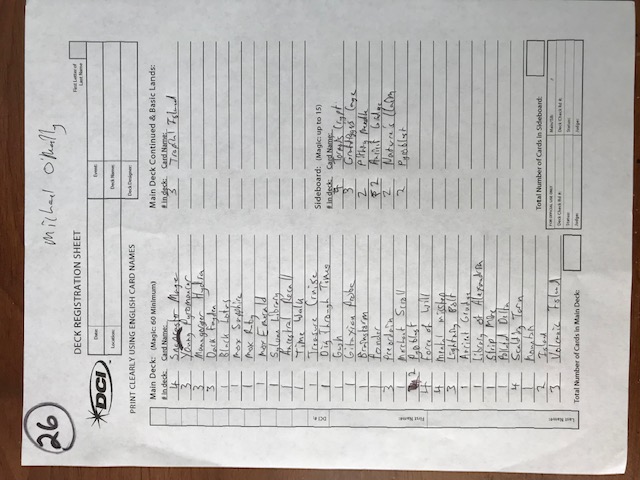 26
Michael O'Mally
DECK REGISTRATION SHEET
First Letter of
Last Name
DCI
Date:
Event:
Location:
Deck Name:
Deck Designer:
PRINT CLEARLY USING ENGLISH CARD NAMES
Main Deck: (Magic: 60 Minimum)
# in deck: Card Name:
4 Snapcaster Mage
3 Young Pyromancer
3 Managorger Hydra
3 Dack Fayden
1 Black Lotus
1 Mox Sapphire
1 Mox Ruby
1 Mox Emerald
1 Sylvan Library
1 Ancestral Recall
1 Time Walk
1 Treasure Cruise
1 Dig Through Time
1 Gush
1 Gitaxian Probe
1 Brainstorm
1 Ponder
3 Preordain
1 Merchant Scroll
2 Pyroblast
4 Force of Will
4 Mental Misstep
3 Lightning Bolt
1 Ancient Grudge
1 Library of Alexandria
1 Strip Mine
1 Polluted Delta
4 Scalding Tarn
1 Mountain
2 Island
3 Volcanic Island
Total Number of Cards in Main Deck:
Main Deck Continued & Basic Lands:
# in deck: Card Name:
3 Tropical Island
Sideboard: (Magic: up to 15)
# in deck: Card Name:
4 Tormod's Crypt
3 Grafdigger's Cage
2 Pithing Needle
2 Ancient Grudge
2 Nature's Claim
2 Pyroblast
Total Number of Cards in Sideboard:
FOR OFFICIAL USE ONLY
Main/SB: /
Deck Check Rd #:
Deck Check Rd #:
Status:
Status:
Judge:
Judge:
DCI #:
First Name:
Last Name: